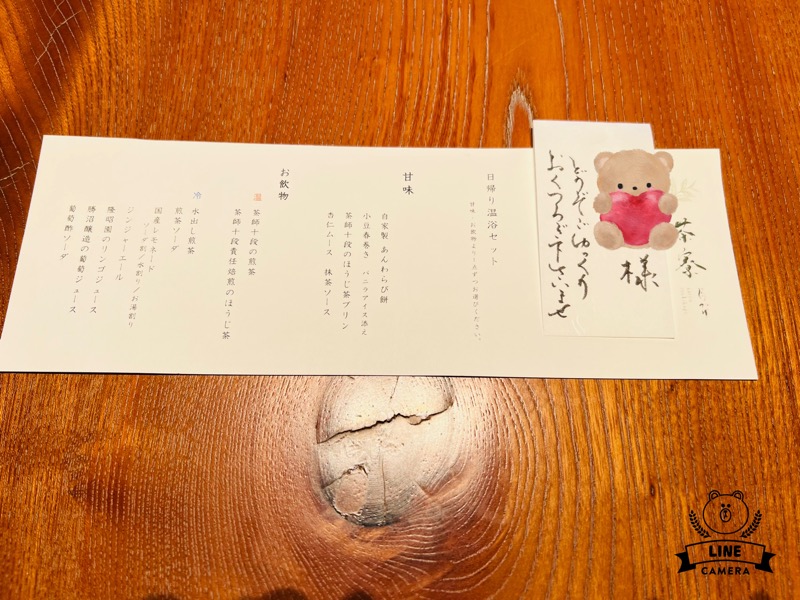 茶寮
様
どうぞごゆっくり
おくつろぎ下さいませ
日帰り温浴セット
甘味、お飲物より一点ずつお選びください。
甘味
自家製 あんわらび餅
小豆春巻き バニラアイス添え
茶師十段のほうじ茶プリン
杏仁ムース 抹茶ソース
お飲物
温
茶師十段の煎茶
茶師十段責任焙煎のほうじ茶
冷
水出し煎茶
煎茶ソーダ
国産レモネード
ソーダ割/水割り/お湯割り
ジンジャーエール
隆昭園のリンゴジュース
勝沼醸造の葡萄ジュース
葡萄酢ソーダ
LINE
CAMERA